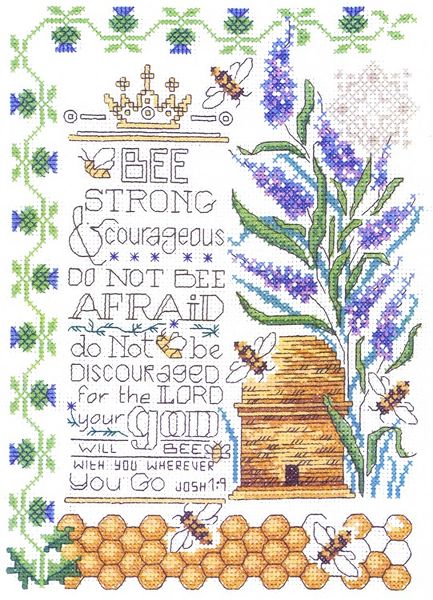 BEE
STRONG
& courageous
DO NOT BEE
AFRAiD
do Not be
DISCOURAGED
for the LORD
your gOD
WILL BEE
WITH YOU WHEREVER
YOU GO JOSH 1:9